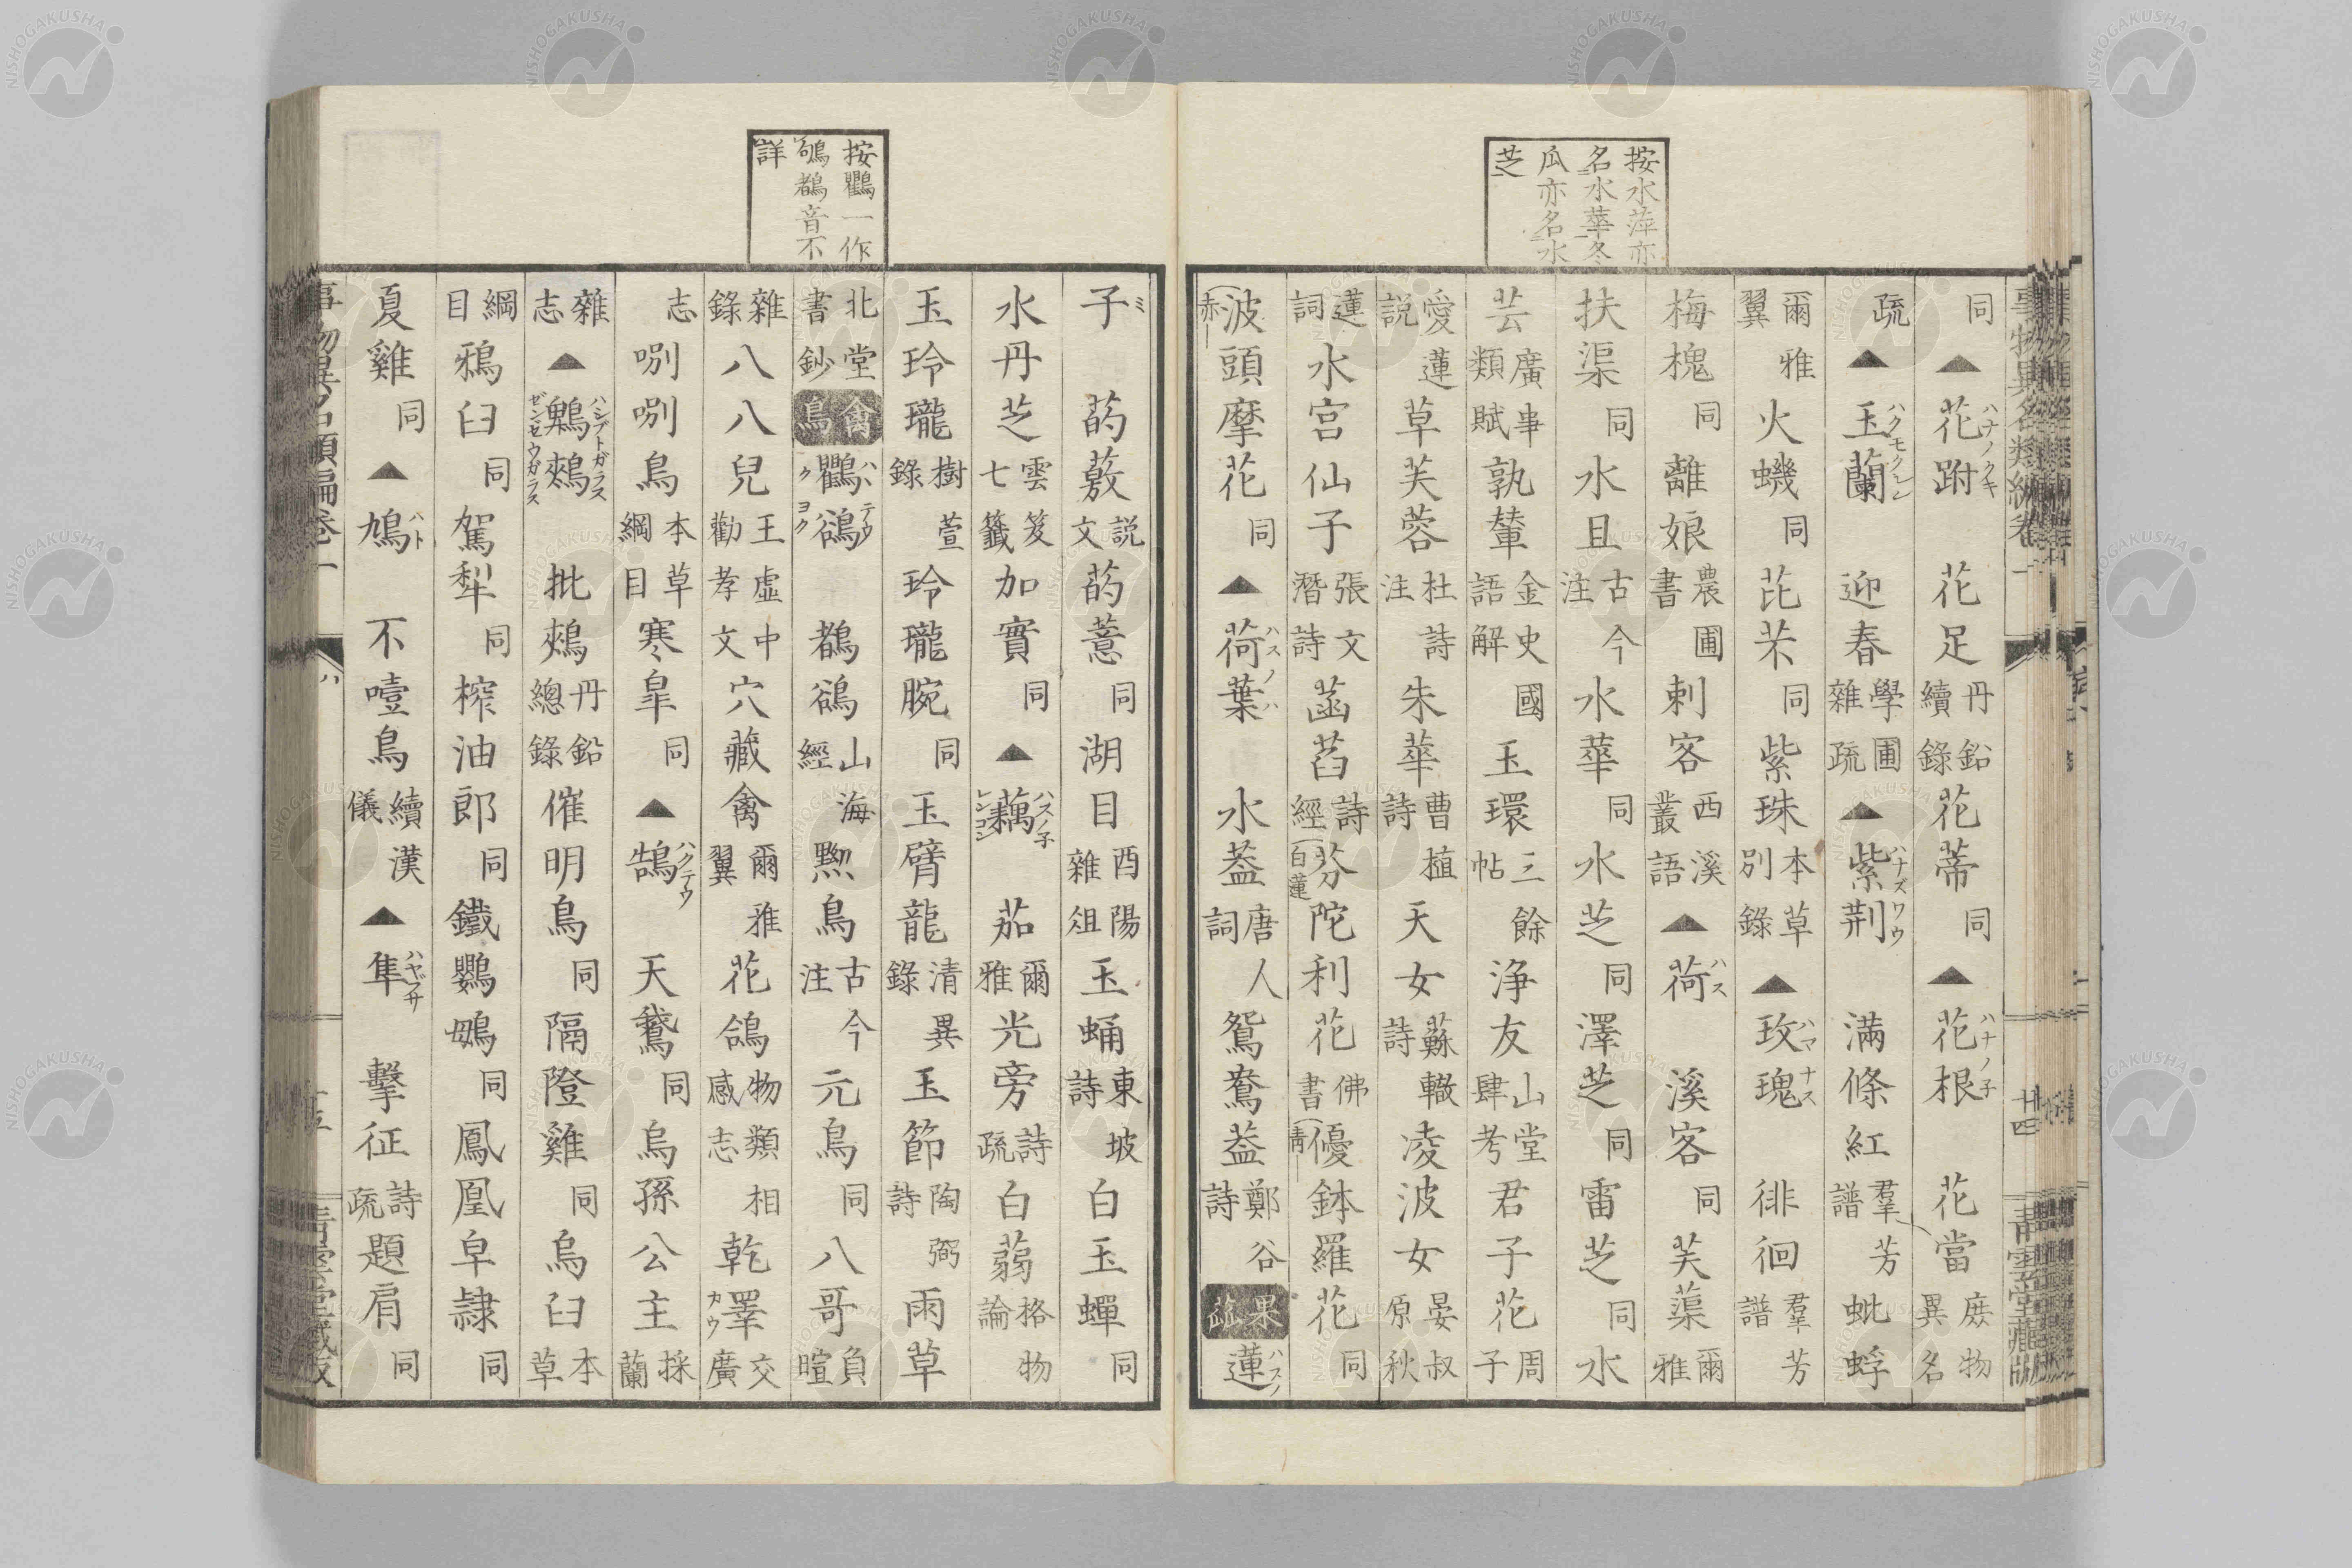 按水萍亦
名水華冬
瓜亦名水
芝
同▲花跗ハナノクキ 花足丹鉛續錄花蒂同▲花根ハナノ子 花當庶物異名
疏▲玉蘭ハクモクレン 迎春學圃雜疏▲紫荆ハナズワウ 滿條紅羣芳譜蚍蜉
爾雅翼火蟣同芘芣同紫珠本草別錄▲玫瑰ハマナス 徘徊羣芳譜
梅槐同離娘農圃書刺客西溪叢語▲荷ハス 溪客同芙蕖爾雅
扶渠同水且古今注水華同水芝同澤芝同雷芝同水
芸廣事類賦孰輦金史國語解玉環三餘帖淨友山堂肆考君子花周子
愛蓮説草芙蓉杜詩注朱華曹植詩天女蘇轍詩凌波女晏叔原秋
蓮詞水宮仙子張文潛詩菡萏詩經芬陀利花佛書(白蓮優鉢羅花同(靑—
波頭摩花同(赤—▲荷葉ハスノハ 水葢唐人詞鴛鴦葢鄭谷詩果蓏蓮ハスノ
事物異名類編卷一
廿四
靑雲堂藏版
按鸜一作
鴝鵒音不
詳
子ミ 菂薂説文菂薏同湖目酉陽雜俎玉蛹東坡詩白玉蟬同
水丹芝雲笈七籤加實同▲藕ハスノ子レンコン 茄爾雅光旁詩疏白蒻格物論
玉玲瓏樹萱錄玲瓏腕同玉臂龍清異錄玉節陶弼詩雨草
北堂書鈔禽鳥鸜鵒ハハテウクヨク 鵒山海經㸃鳥古今注元鳥同八哥負暄
雜錄八八兒王虛中勸孝文穴藏禽爾雅翼花鴿物類相感志乾澤カウ交廣
志哵哵鳥本草綱目寒皐同▲鵠ハクテウ 天鵞同烏孫公主採蘭
雜志▲鵯鵊ハシブトガラスゼンセウガラス 批鵊丹鉛總錄催明鳥同隔隥雞同烏臼本草
綱目鴉臼同駕犁同榨油郎同鐵鸚鴟同鳳凰皁隷同
夏雞同▲鳩ハト 不噎鳥續漢儀▲隼ハヤブサ 擊征詩疏題肩同
事物異名類編卷一
ハ
靑雲堂藏版